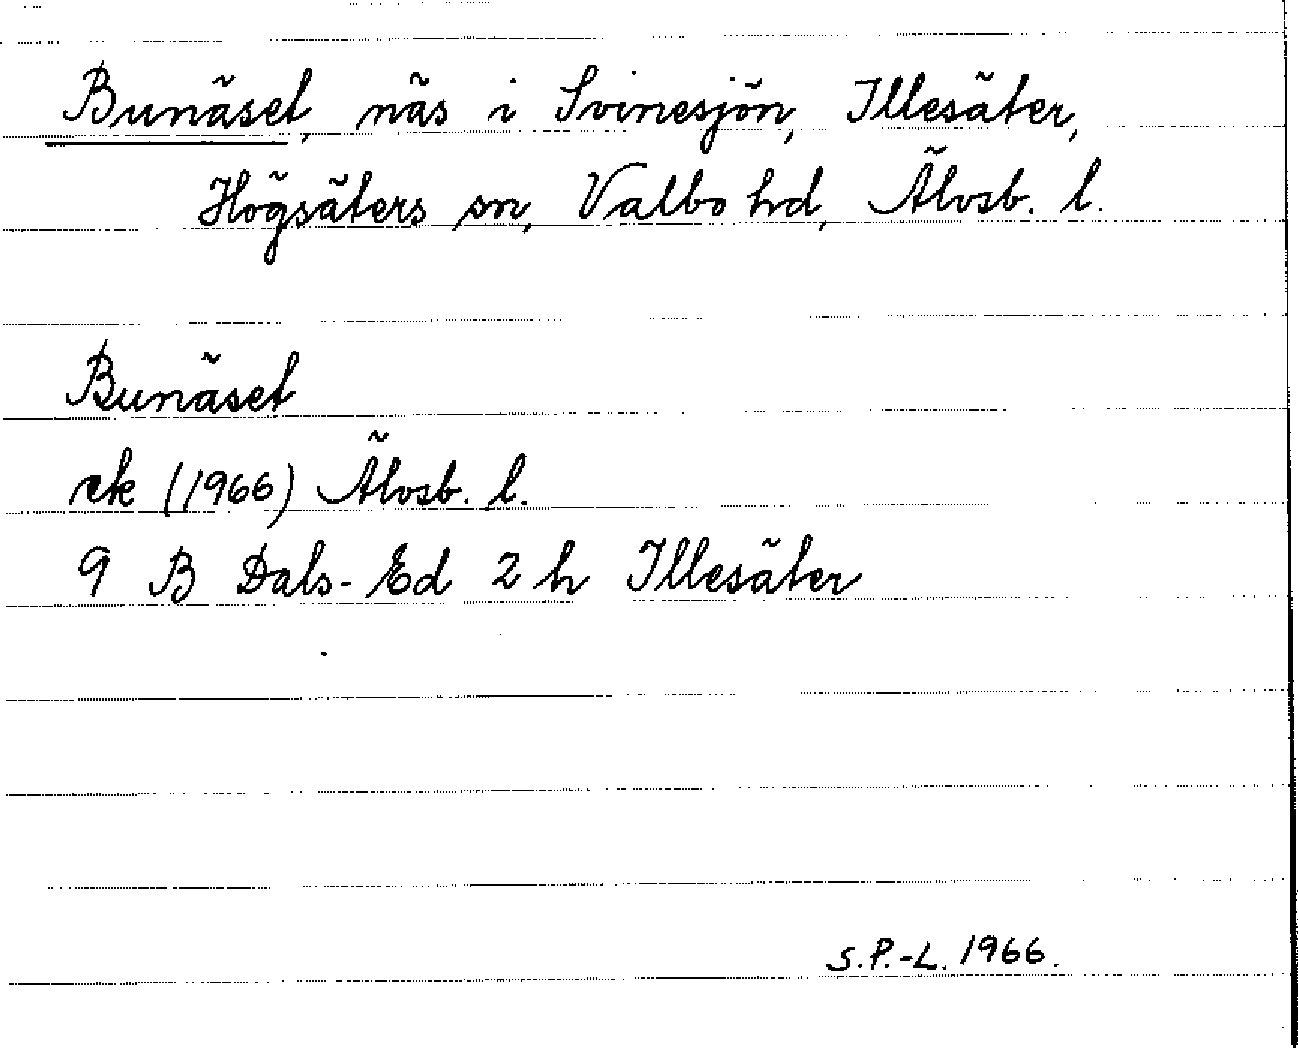 Bunäset, näs i Svinesjön, Illesäter,
Högsäters sn, Valbo hd, Älvsb. l.
Bunäset
ek (1966) Älvsb. l.
9 B Dals-Ed 2 h Illesäter
S.P.-L. 1966.